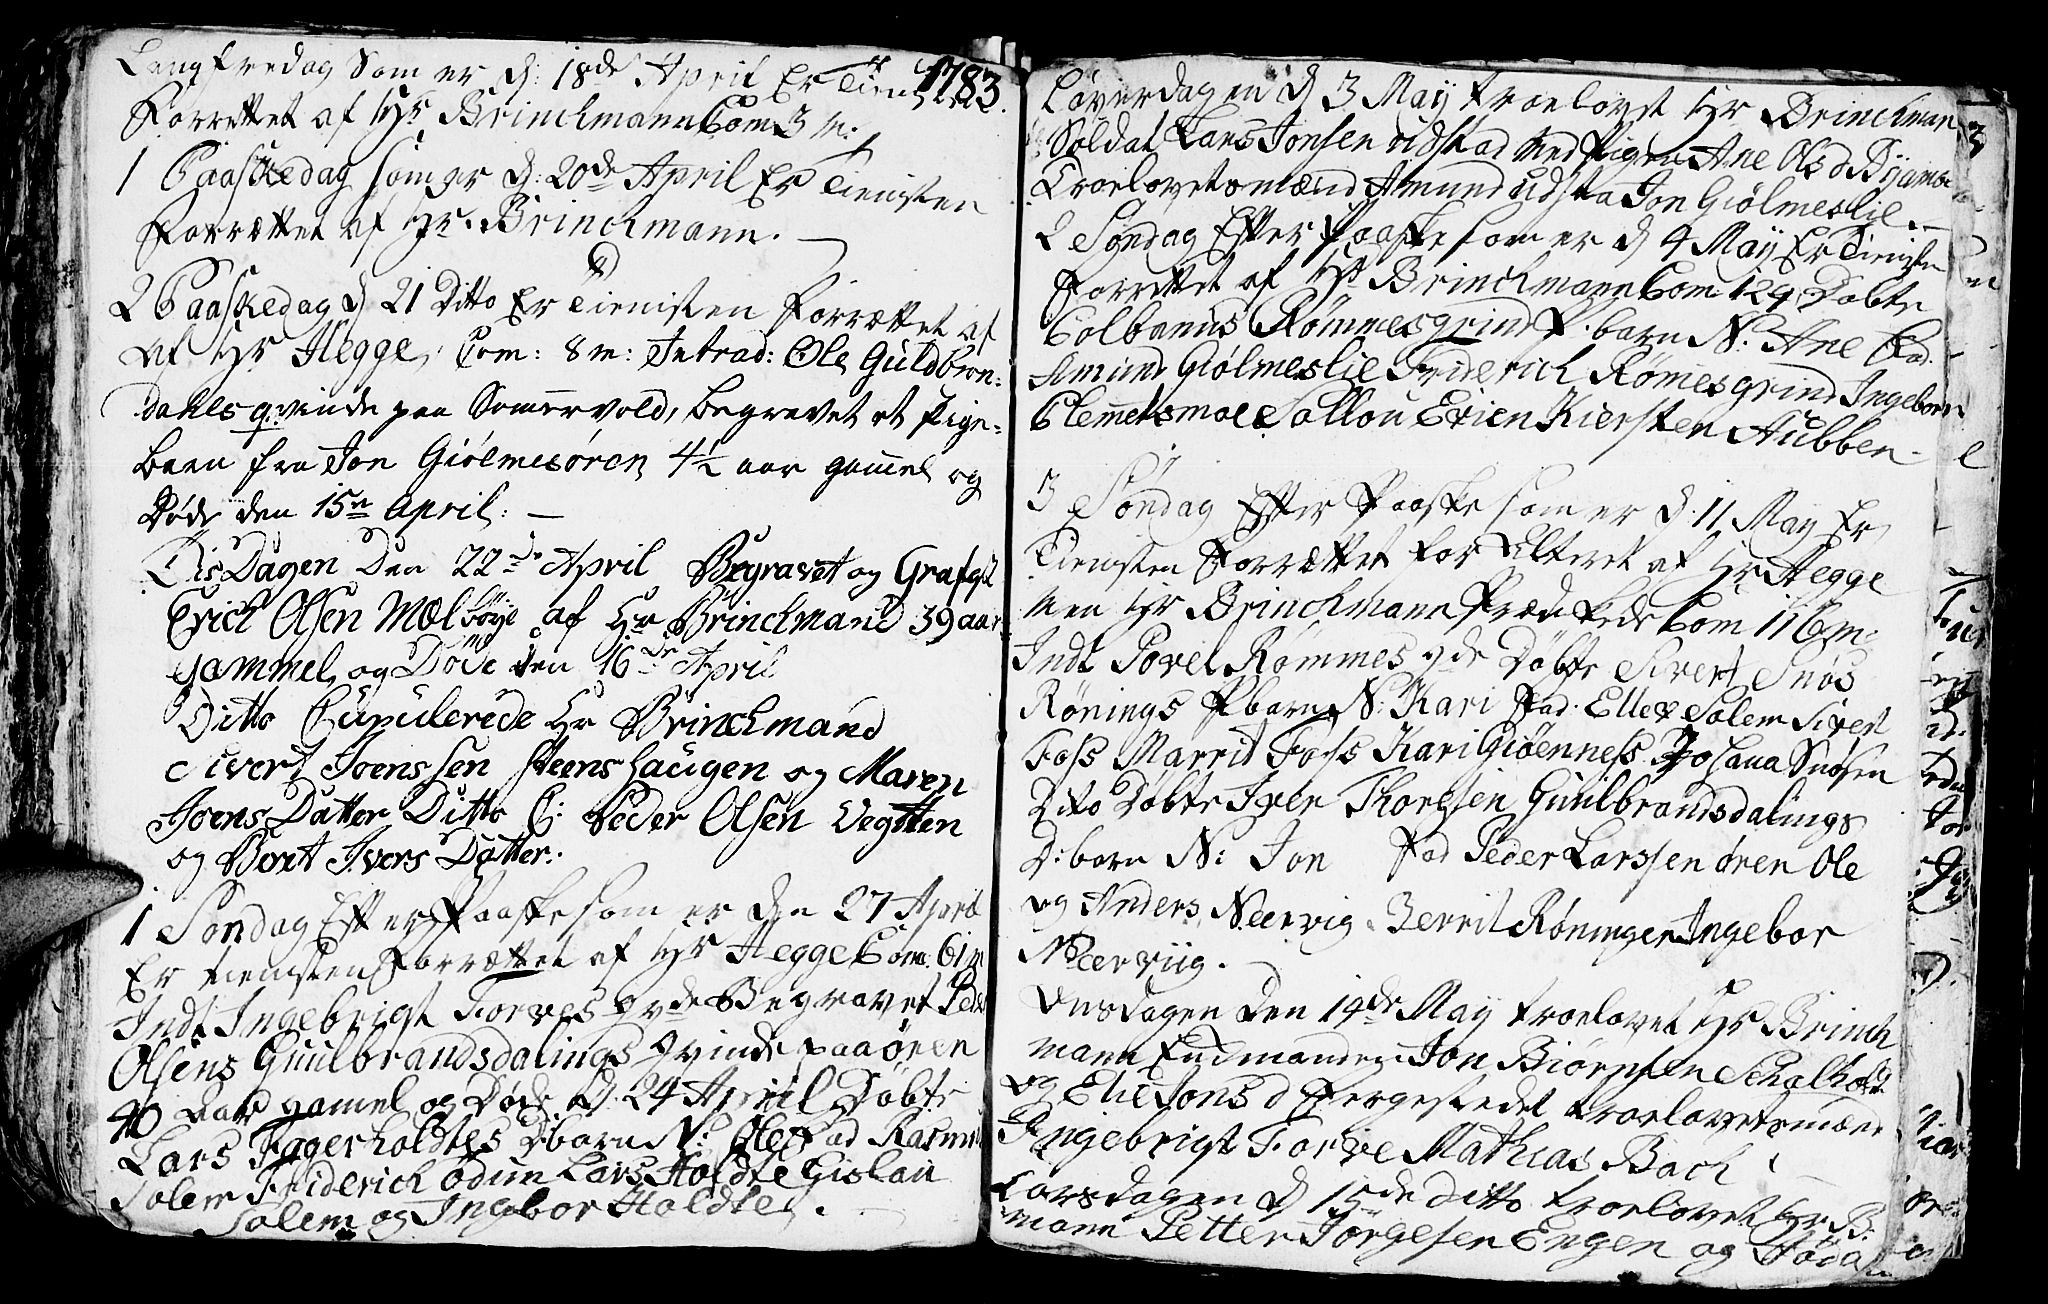 1783.
Langfredag Som er d: 18de April Er Tienesten
Forrettet af Hr Brinchmann Com 3 m:
1 Paaskedag som er d: 20de April Er Tienisten
forrættet af Hr. Brinchmann.
2 Paaskedag d 21 Ditto Er Tienisten forrættet af
af Hr Hegge, Com: 8 m: Introd: Ole Guldbran-
dahls qvinde paa Sommervold, begravet et Pige-
barn fra Jon Giølmesøren 4½ aar gammel og
Døde den 15n April: —
TisDagen Den 22de April Begravet og Grafæst
Erich Olsen Mælbøye af Hr Brinchmand 39 aar
gammel og Døde den 16de April
Ditto Cupulerede Hr Brinchmand
Sivert Joenssen Steenshaugen og Maren
Joens Datter Ditto C: Peder Olsen Vegtten
og Beret Ivers Datter.
1 Søndag Efter Paaske som er den 27 April
Er tienisten forrættet af Hr Hegge Com: 61 m
Indl Ingebrigt Forves qvde Begravet Peder
Olsens Guulbrandsdalings qvinde paa øren
40 aar gamel og Døde d: 24 April Døbte
Lars Fagerholdtes D:barn N: Ole Fad Rasmus
Solem Friderich Odum Lars Holdte Gislau
Solem og Ingebor Holdte.
Løverdagen d 3 May troelovet Hr Brinchman
Soldat Lars Jonsen Udstad med Pigen Ane Ols d Bjørnbe
Troelovetsmænd Amund Udsta Jon Giølmeslie.
2 Søndag Efter Paaske som er d 4 May Er Tienisten
forrettet af Hr Brinchmann Com 129 Døbte
Colbanus Rømmesgrind P.barn N: Ane Fad.
Amund Giølmeslie Friderich Rømesgrind Ingeborr
Clemetsmoe Sollou Erien Kiersten Aubben.
3 Søndag Efter Paaske som er d: 11 May Er
Tienisten Forrættet for Alteret af Hr Hegge
men Hr Brinchmann Prædikede Com 116 m:
Indl Povel Rømmes qde Døbte Sivert Snøs
Rønings P barn N: Kari Fad. Ellef Solem Sivert
Foss Marrit Foss Kari Giøenness Johana Snøsen
Dito Døbte Iver Thoresen Guulbrandsdalings
D:barn N: Jon Fad Peder Larssen øren Ole
og Anders Neervig Berrit Røningen Ingebor
Neerviig.
Onsdagen Den 14de May troelovet Hr Brinch
mann Enchmanden Jon Biørnsen Schalholt
og Elie Jons d Fergestedet troelovetsmænd
Ingebrigt Forve Mathias Bach
Torsdagen d 15de ditto troelovet Hr B:
mann Petter Jørgesen Engen og